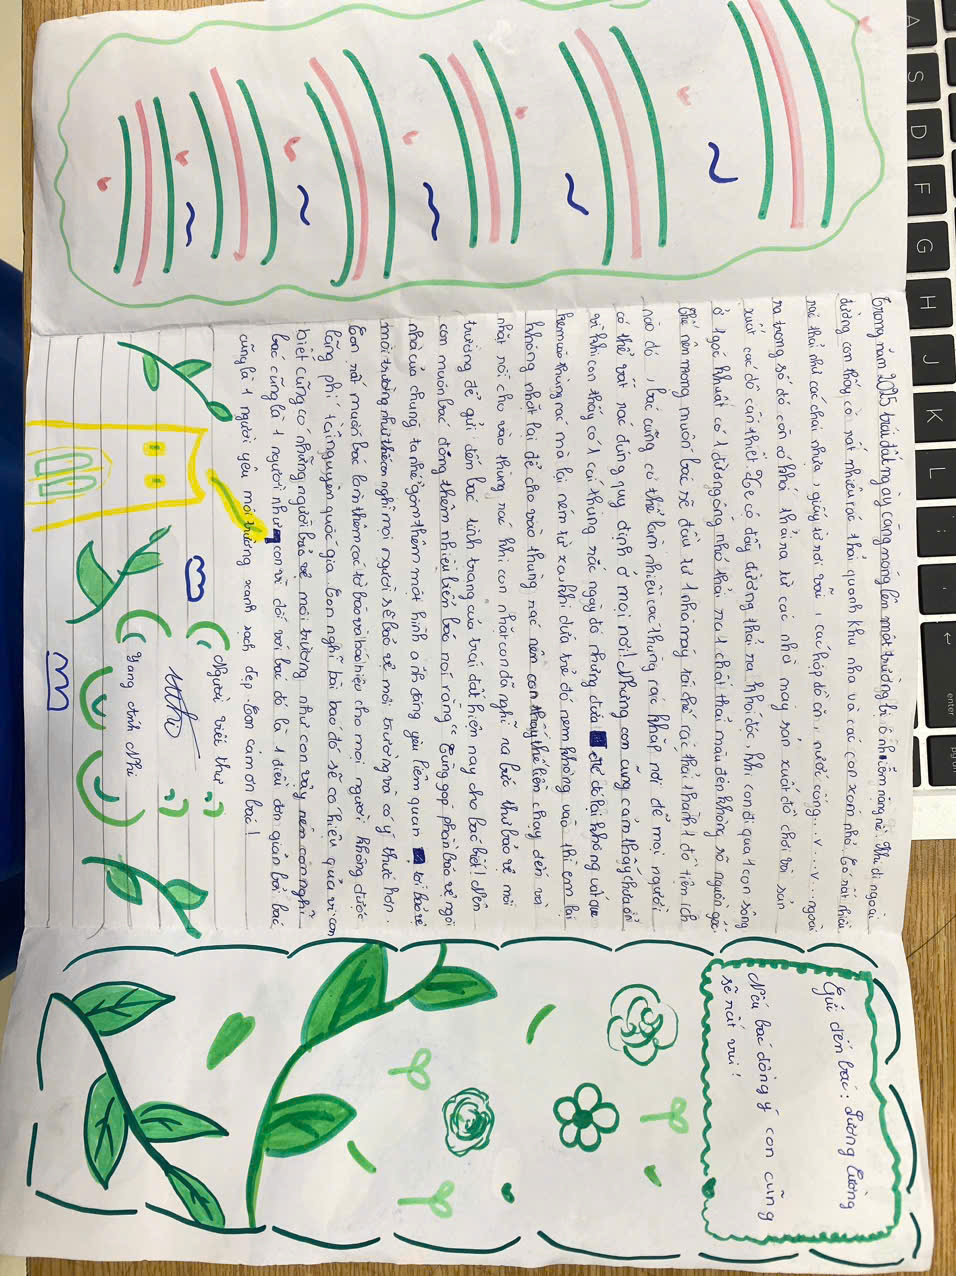 Trong năm 2025 trái đất ngày càng nóng lên, môi trường bị ô nhiễm nặng nề. Khi đi ngoài
đường con thấy có rất nhiều rác thải quanh khu nhà và các con xóm nhỏ. Có rất nhiều
rác thải như các chai nhựa, giấy tờ rơi vãi, các hộp đồ ăn, nước cống...v...v... ngoài
ra trong số đó còn có khói thải ra từ các nhà máy sản xuất đồ chơi và sản
xuất các đồ cần thiết. Xe cộ đầy đường thải ra khói độc, khi con đi qua 1 con sông
ở 1 góc khuất có 1 đường ống nhỏ thải ra 1 chất thải màu đen không rõ nguồn gốc
Thế nên mong muốn bác sẽ đầu tư 1 nhà máy tái chế rác thải thành 1 đồ tiện ích
nào đó, bác cũng có thể làm nhiều các thùng rác khắp nơi để mọi người
có thể vứt rác đúng quy định ở mọi nơi! Nhưng con cũng cảm thấy chưa ổn
vì khi con thấy có 1 cái thùng rác ngay đó nhưng đứa trẻ đó lại không vứt qua
thùng rác mà lại ném từ xa khi đứa trẻ đó ném không vào thì em lại
không nhặt lại để cho vào thùng rác nên con thấy thế liền chạy đến và
nhặt rồi cho vào thùng rác khi con nhặt con đã nghĩ ra bức thư bảo vệ môi
trường để gửi đến bác tình trạng của trái đất hiện nay cho bác biết! Nên
con muốn bác đóng thêm nhiều biển báo nói rằng: "Cùng góp phần bảo vệ ngôi
nhà của chúng ta nhé" gồm thêm một hình ảnh đáng yêu liên quan tới bảo vệ
môi trường như thế con nghĩ mọi người sẽ bảo vệ môi trường và có ý thức hơn.
Con rất muốn bác làm thêm các tờ báo và báo hiệu cho mọi người không được
lãng phí tài nguyên quốc gia. Con nghĩ bài báo đó sẽ có hiệu quả vì con
biết cũng có những người bảo vệ môi trường như con vậy nên con nghĩ
bác cũng là 1 người như con vì đối với bác đó là 1 điều đơn giản bởi bác
cũng là 1 người yêu môi trường xanh sạch đẹp. Con cảm ơn bác!
Người viết thư
Giang Đình Nhi
Gửi đến bác: Lương Cường
Nếu bác đồng ý con cũng
sẽ rất vui!
A S D F G H J K L ; ' enter